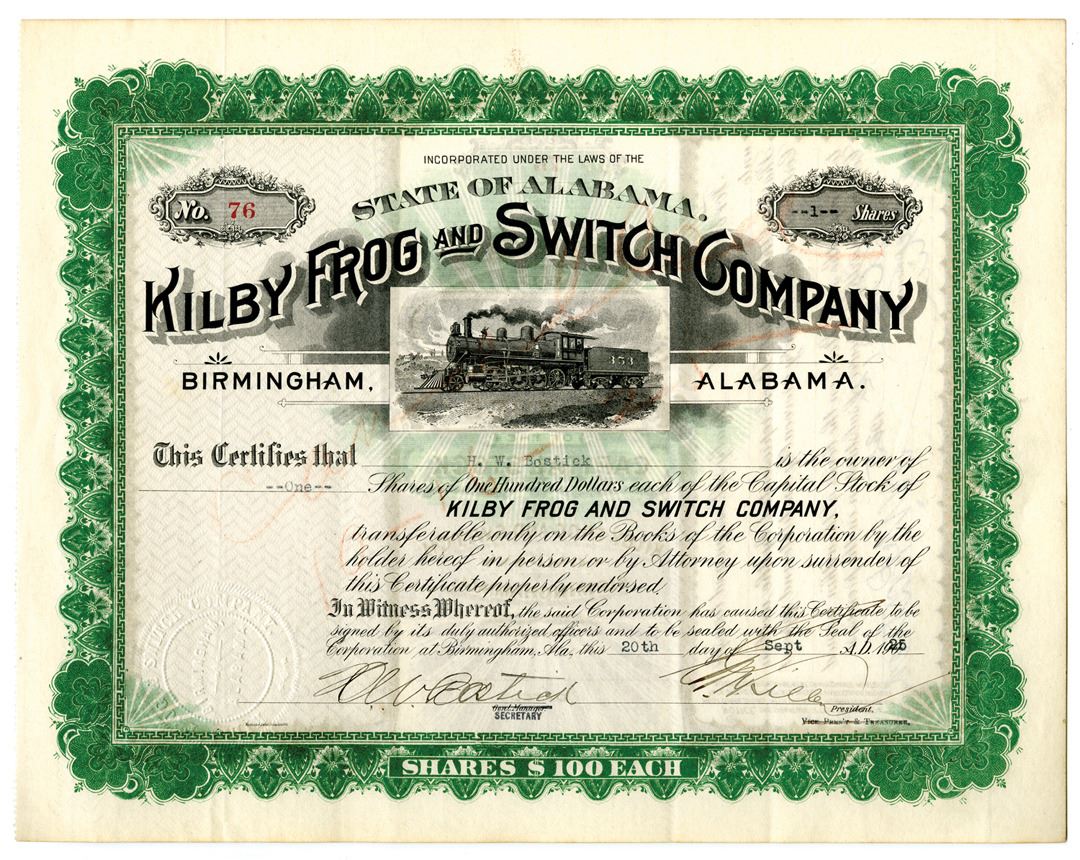 INCORPORATED UNDER THE LAWS OF THE
STATE OF ALABAMA.
No. 76
--1-- Shares
KILBY FROG AND SWITCH COMPANY
353
BIRMINGHAM, ALABAMA.
This Certifies that H. W. Bostick is the owner of
--One-- Shares of One Hundred Dollars each of the Capital Stock of
KILBY FROG AND SWITCH COMPANY,
transferable only on the Books of the Corporation by the
holder hereof in person or by Attorney upon surrender of
this Certificate properly endorsed.
In Witness Whereof, the said Corporation has caused this Certificate to be
signed by its duly authorized officers and to be sealed with the Seal of the
Corporation at Birmingham, Ala., this 20th day of Sept A.D. 1925
H W Bostick
Genl. Manager
SECRETARY
President.
VICE PRES'T & TREASURER.
SHARES $100 EACH